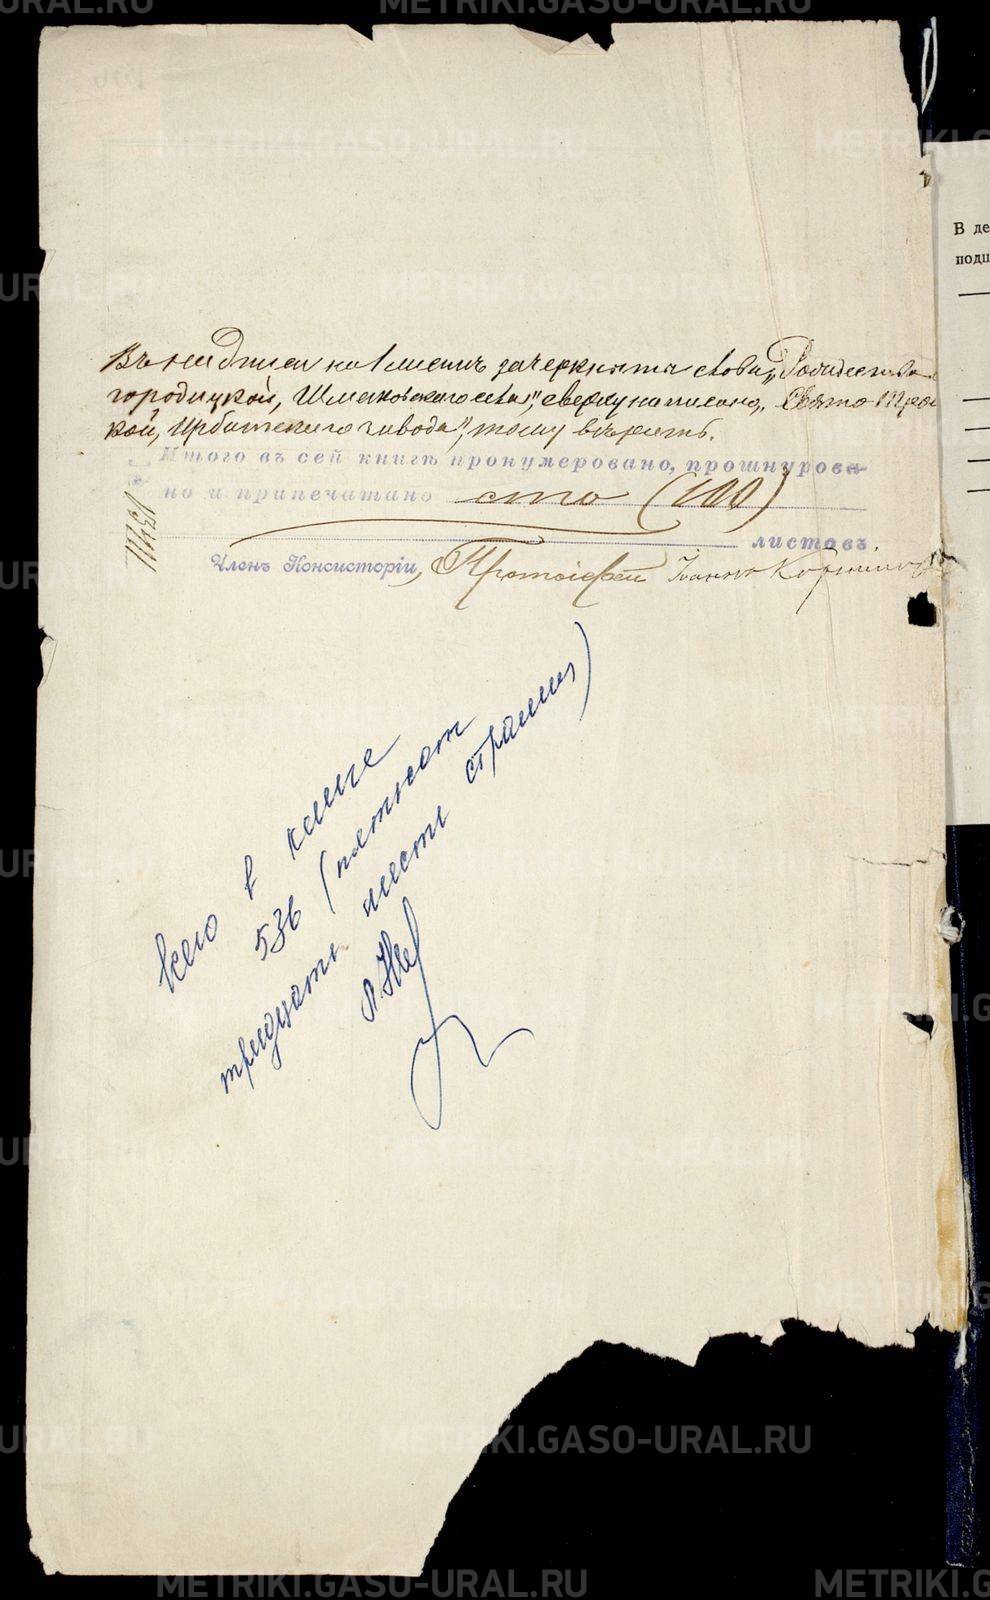 METRIKI.GASO-URAL.RU
Въ надписи на 1 листѣ зачеркнута слова „Рождество
городицкой, Шмаковскаго села", сверху написано, „Свято Трои
кой, Ирбитскаго завода", тому вѣрить.
Итого въ сей книгѣ пронумеровано, прошнурова-
но и припечатано сто (100)
листовъ.
Членъ Консисторіи, Протоіерей Іоаннъ
Всего в книге
536 (пятьсот
тридцать шесть страниц)
В де
подп